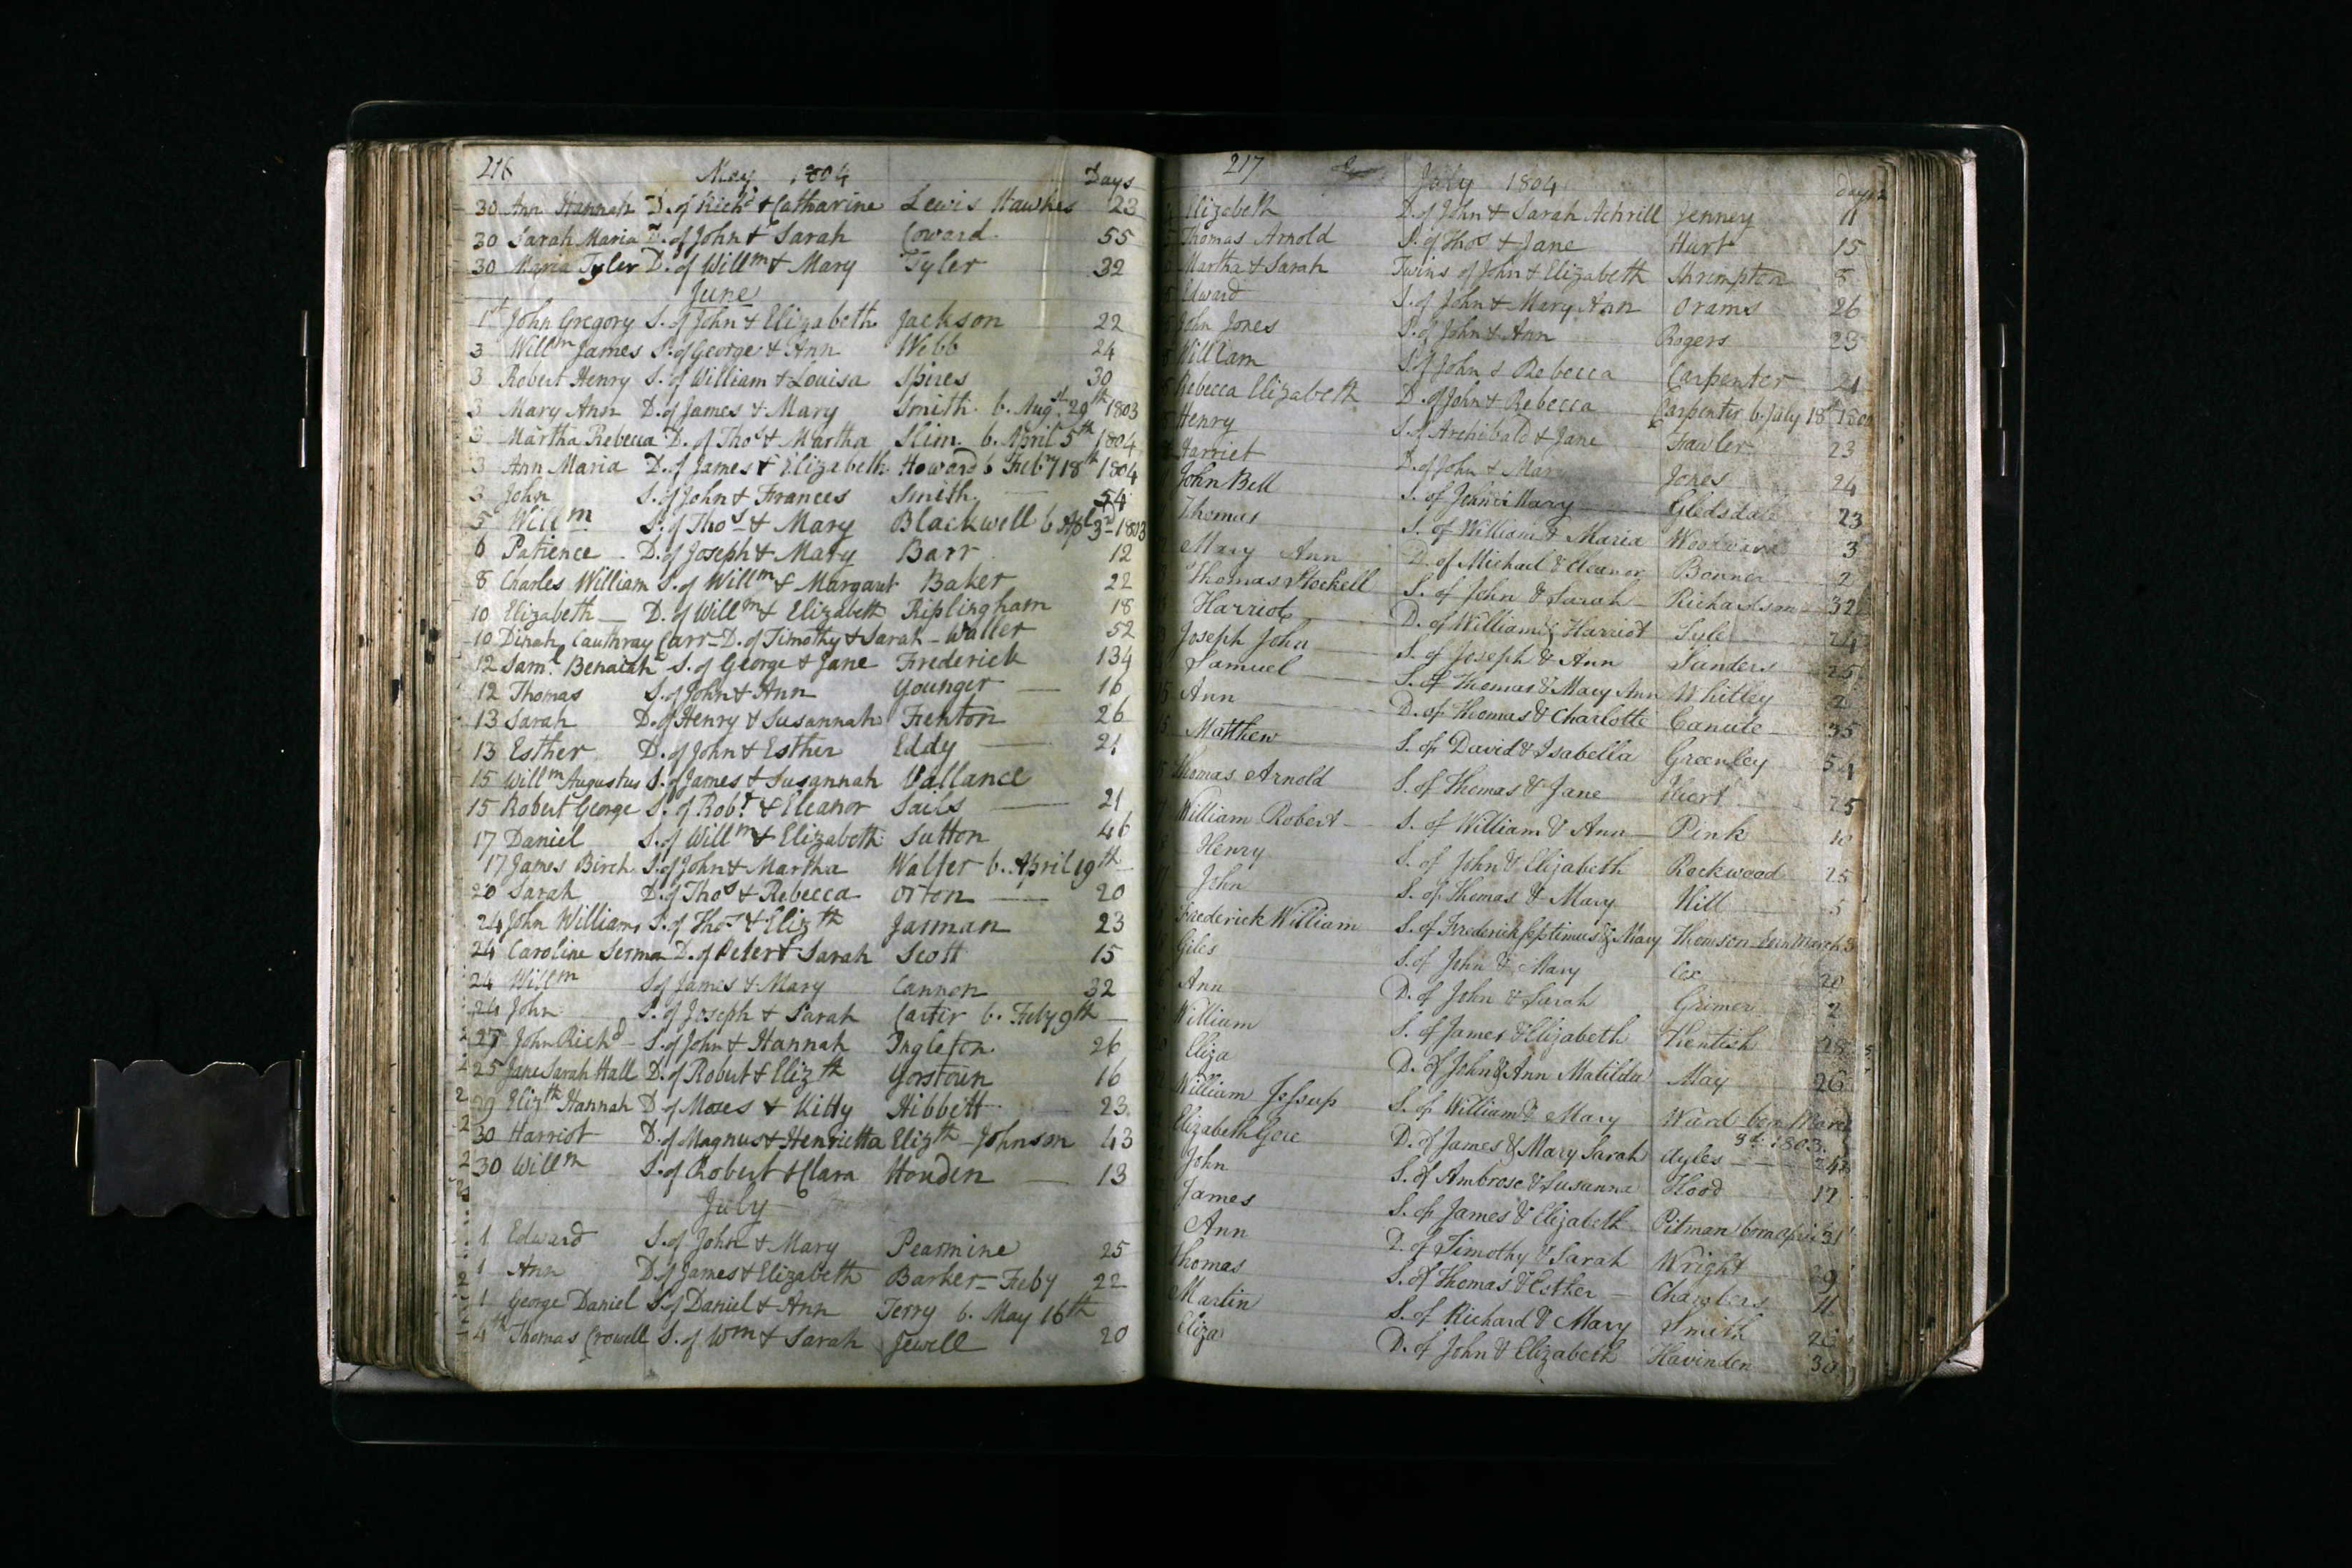 216 May 1804 Days
30 Ann Hannah D. of Richd & Catharine Lewis Hawkes 23
30 Sarah Maria D. of John & Sarah Coward 55
30 Maria Tyler D. of Willm & Mary Tyler 32
June
1st John Gregory S. of John & Elizabeth Jackson 22
3 Willm James S. of George & Ann Webb 24
3 Robert Henry S. of William & Louisa Spires 30
3 Mary Ann D. of James & Mary Smith b. Augst 29th 1803
3 Martha Rebecca D. of Thos & Martha Slim b. April 5th 1804
3 Ann Maria D. of James & Elizabeth Howard b Feby 18th 1804
3 John S. of John & Frances Smith 54
5 Willm S. of Thos & Mary Blackwell b Apl 3rd 1803
6 Patience D. of Joseph & Mary Barr 12
8 Charles William S. of Willm & Margaret Baker 22
10 Elizabeth D. of Willm & Elizabeth Riplingham 18
10 Dinah Cauthray Carr D. of Timothy & Sarah Waller 52
12 Saml Benaiah S. of George & Jane Frederick 134
12 Thomas S. of John & Ann Younger 16
13 Sarah D. of Henry & Susannah Frenton 26
13 Esther D. of John & Esther Eddy 21
15 Willm Augustus S. of James & Susannah Vallance
15 Robert George S. of Robt & Eleanor Sails 21
17 Daniel S. of Willm & Elizabeth Sutton 46
17 James Birch S. of John & Martha Walter b. April 19th
20 Sarah D. of Thos & Rebecca Orton 20
24 John Williams S. of Thos & Elizth Jarman 23
24 Caroline D. of Peter & Sarah Scott 15
24 Willm S of James & Mary Cannon 32
24 John S. of Joseph & Sarah Carter b. Feby 9th
27 John Richd S. of John & Hannah Ingleton 26
25 Jane Sarah Hall D. of Robert & Elizth Yorstoun 16
29 Elizth Hannah D of Moses & Kitty Hibbett 23
30 Harriot D. of Magnus & Henrietta Elizth Johnson 43
30 Willm S. of Robert & Clara Houden 13
July
1 Edward S. of John & Mary Pearmine 25
1 Ann D. of James & Elizabeth Barker Feby 22
1 George Daniel S. of Daniel & Ann Terry b. May 16th
4th Thomas Crowell S. of Wm & Sarah Jewell 20
217 July 1804 days
Elizabeth D. of John & Sarah Achrill Jenney 11
Thomas Arnold S. of Thos & Jane Hart 15
Martha & Sarah Twins of John & Elizabeth Shrimpton 8
Edward S. of John & Mary Ann Orams 26
John Jones S. of John & Ann Rogers 23
William S. of John & Rebecca Carpenter 21
Rebecca Elizabeth D. of John & Rebecca Carpenter b. July 18th 1800
Henry S. of Archibald & Jane Fawler 23
Harriet D. of John & Mary Jones 24
John Bell S. of John & Mary Gledsdale 23
Thomas S. of William & Maria Woodward 3
Mary Ann D. of Michael & Eleanor Bonner 2
Thomas Stockell S. of John & Sarah Richardson 32
Harriot D. of William & Harriot Tyler 24
Joseph John S. of Joseph & Ann Sanders 25
Samuel S. of Thomas & Mary Ann Whitley 2
Ann D. of Thomas & Charlotte Canute 35
Matthew S. of David & Isabella Greenley 54
Thomas Arnold S. of Thomas & Jane Hart 25
William Robert S. of William & Ann Pink 10
Henry S. of John & Elizabeth Rockwood 25
John S. of Thomas & Mary Hill 5
Frederick William S. of Frederick Septimus & Mary Thomson born March 8
Giles S. of John & Mary Cox 20
Ann D. of John & Sarah Grimer 2
William S. of James & Elizabeth Kentish 28
Eliza D. of John & Ann Matilda May 26
William Jessup S. of William & Mary Ward born March
3d 1803.
Elizabeth Gere D. of James & Mary Sarah Ayles 24
John S. of Ambrose & Susanna Hood 17
James S. of James & Elizabeth Pitman born April 31
Ann D. of Timothy & Sarah Wright 29
Thomas S. of Thomas & Esther Chambers 11
Martin S. of Richard & Mary Smith 26
Eliza D. of John & Elizabeth Havinden 30